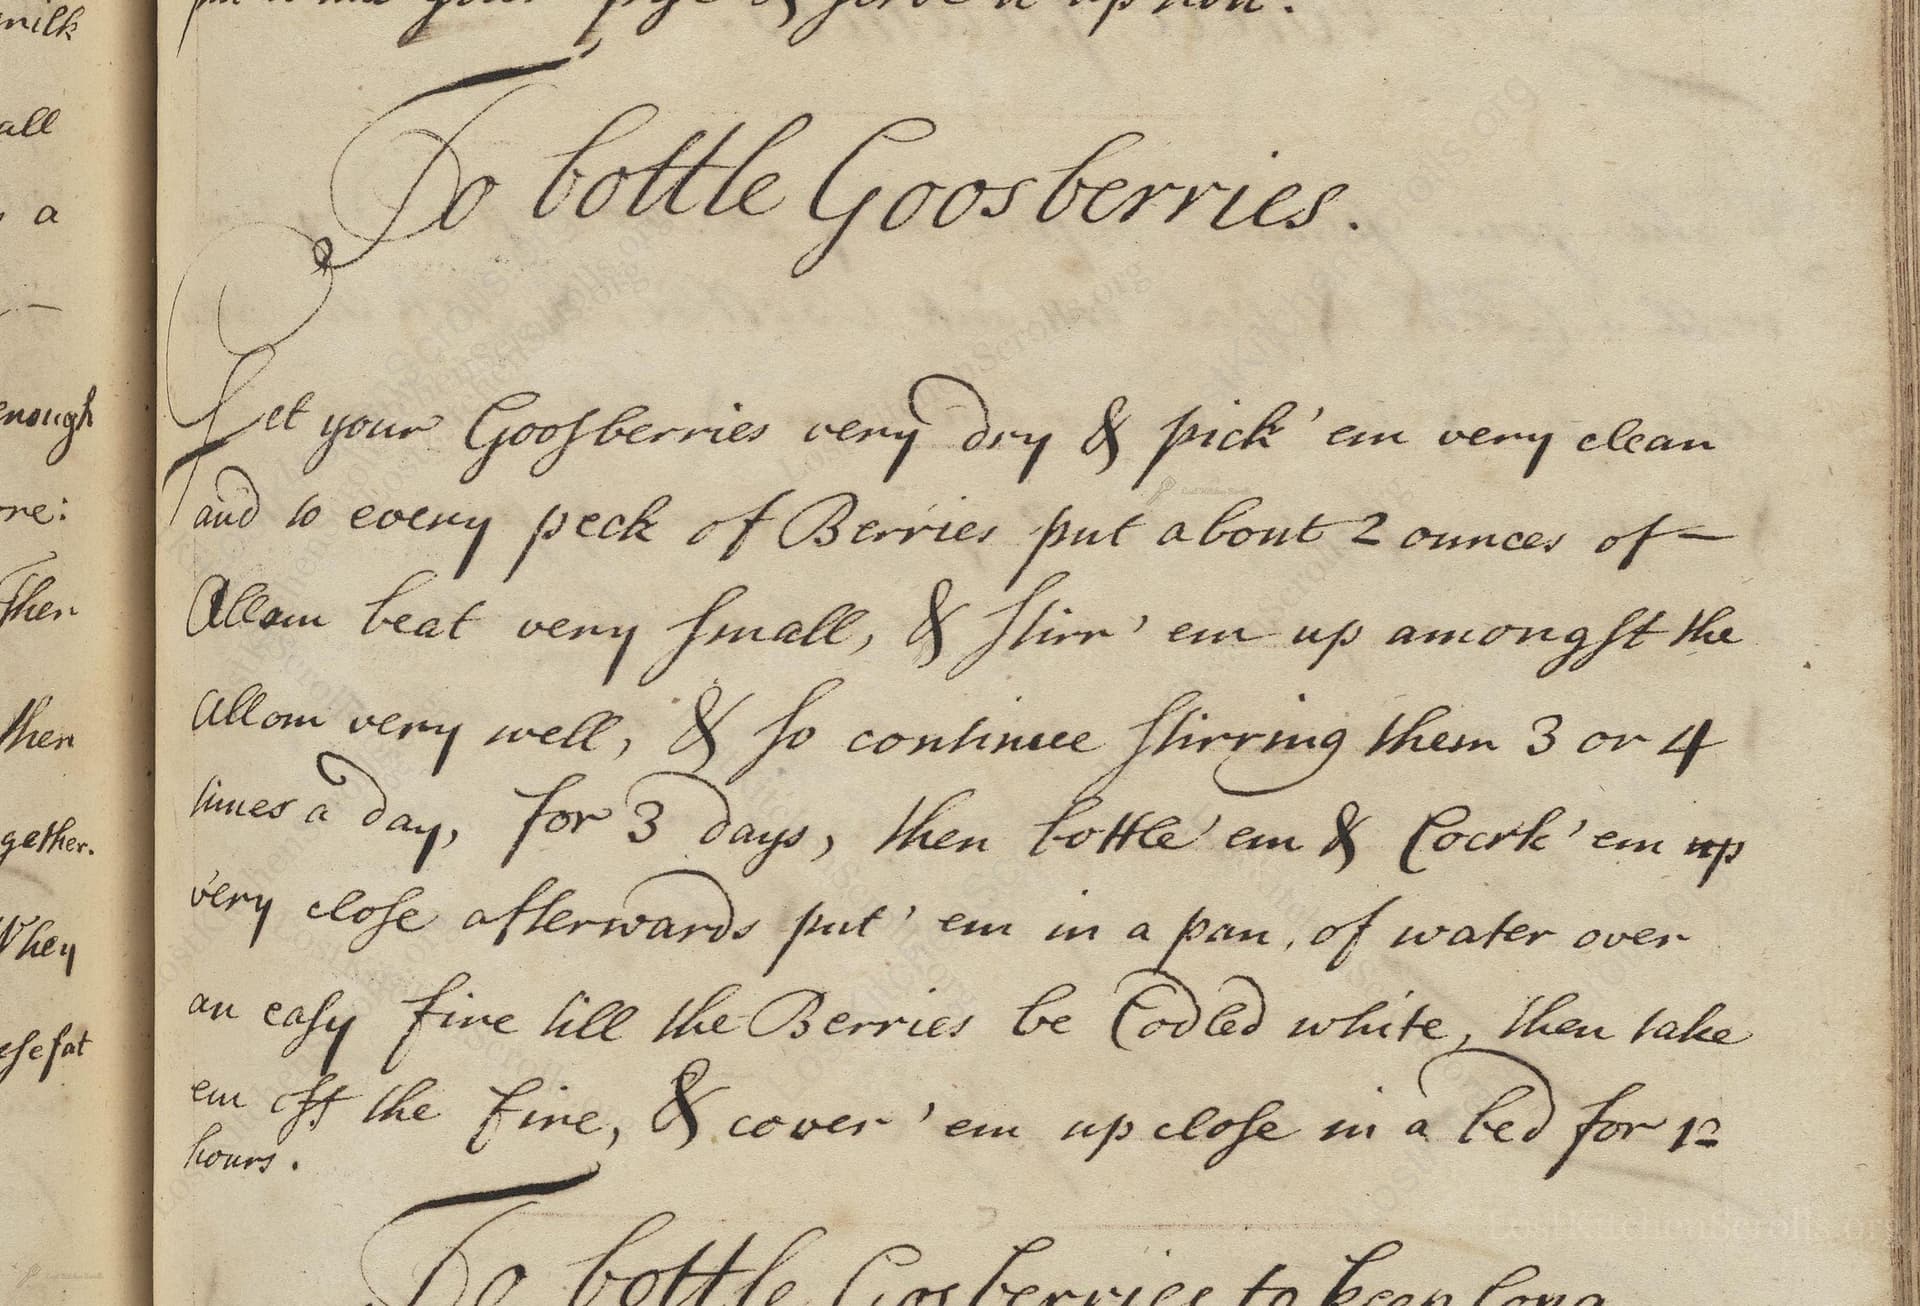 milk
all
a
enough
ore:
Then
then
gether.
Whey
esefat
your pye & serve it up hott.
To bottle Goosberries.
Let your Gooſberries very dry & pick 'em very clean
and to every peck of Berries put about 2 ounces of —
Allom beat very ſmall, & ſtirr' em up amongſt the
allom very well, & ſo continue ſtirring them 3 or 4
times a day, for 3 days, then bottle' em & Cocrk' em up
very cloſe afterwards put' em in a pan, of water over
an eaſy fire till the Berries be Codled white, then take
em off the fire, & cover' em up cloſe in a bed for 12
hours.
To bottle Gosberries to keep long
LostKitchenScrolls.org